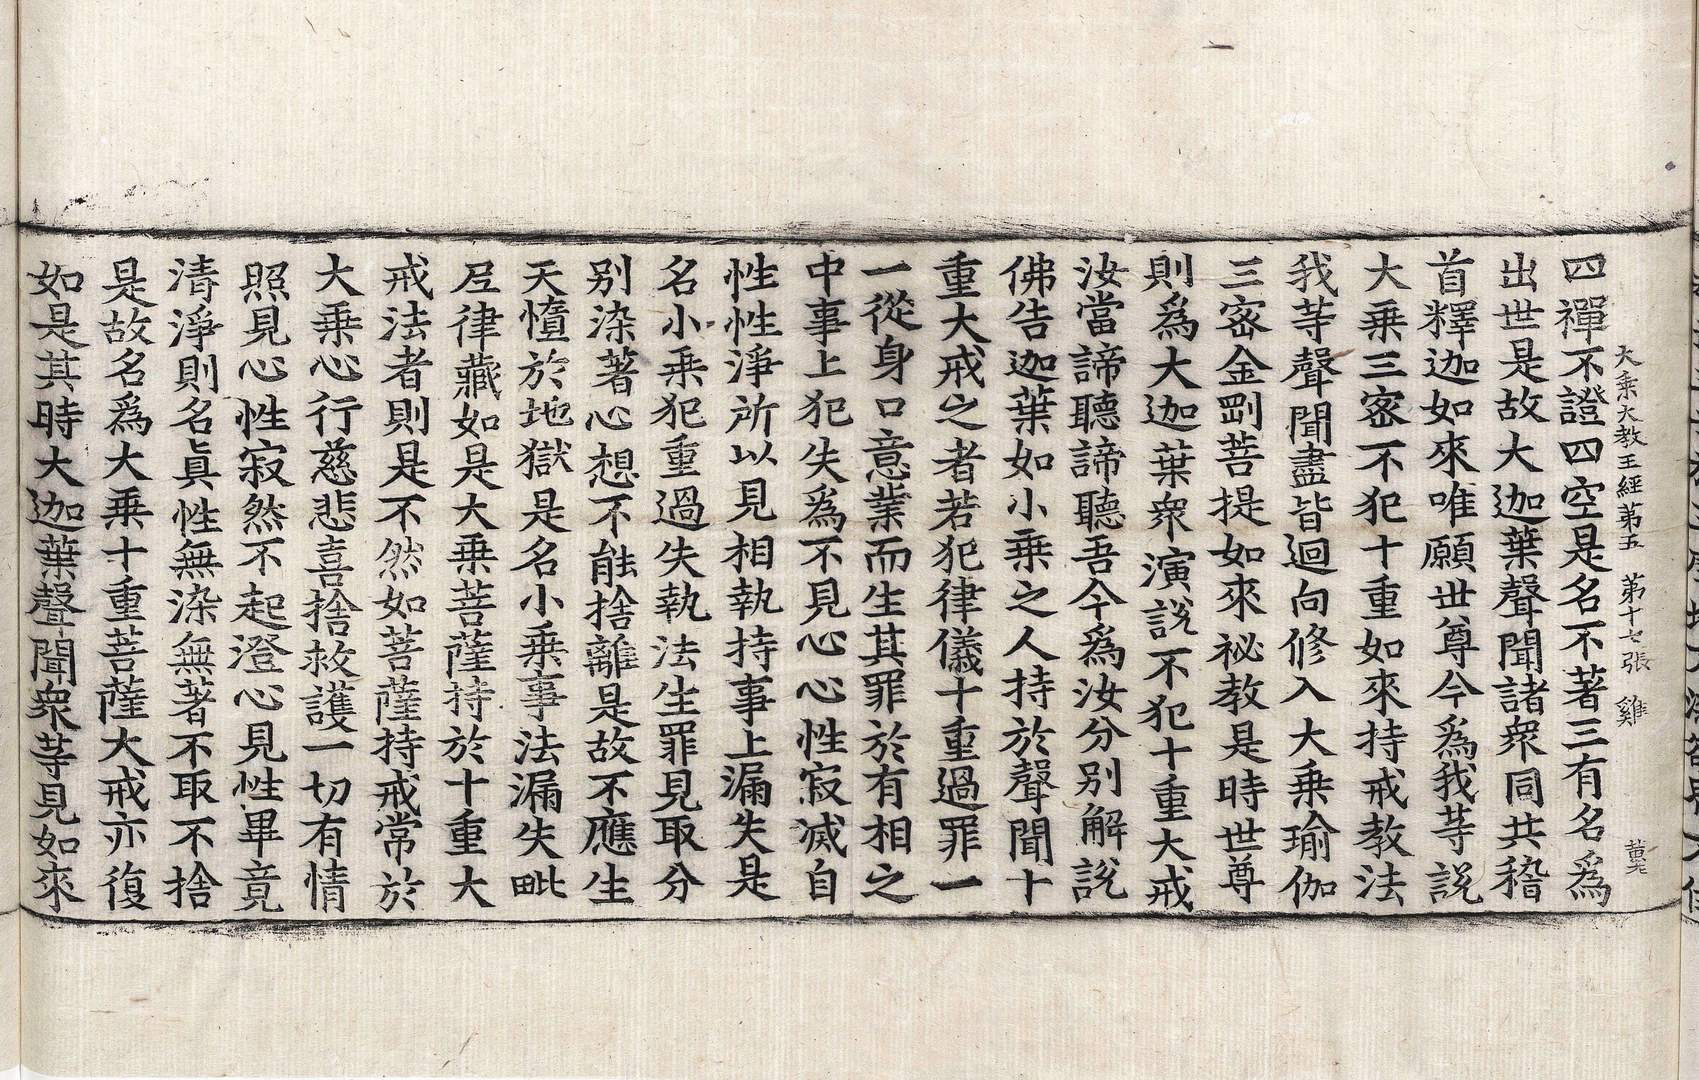 大乘大教王經第五 第十七張 雞
四禪不證四空是名不著三有名爲
出世是故大迦葉聲聞諸衆同共稽
首釋迦如來唯願世尊今爲我等說
大乘三密不犯十重如來持戒教法
我等聲聞盡皆迴向修入大乘瑜伽
三密金剛菩提如來祕教是時世尊
則爲大迦葉衆演說不犯十重大戒
汝當諦聽諦聽吾今爲汝分別解說
佛告迦葉如小乘之人持於聲聞十
重大戒之者若犯律儀十重過罪一
一從身口意業而生其罪於有相之
中事上犯失爲不見心心性寂滅自
性性淨所以見相執持事上漏失是
名小乘犯重過失執法生罪見取分
别染著心想不能捨離是故不應生
天憻於地獄是名小乘事法漏失毗
𡰱律藏如是大乘菩薩持於十重大
戒法者則是不然如菩薩持戒常於
大乘心行慈悲喜捨救護一切有情
照見心性寂然不起澄心見性畢竟
清淨則名真性無染無著不取不捨
是故名爲大乘十重菩薩大戒亦復
如是其時大迦葉聲聞衆等見如來